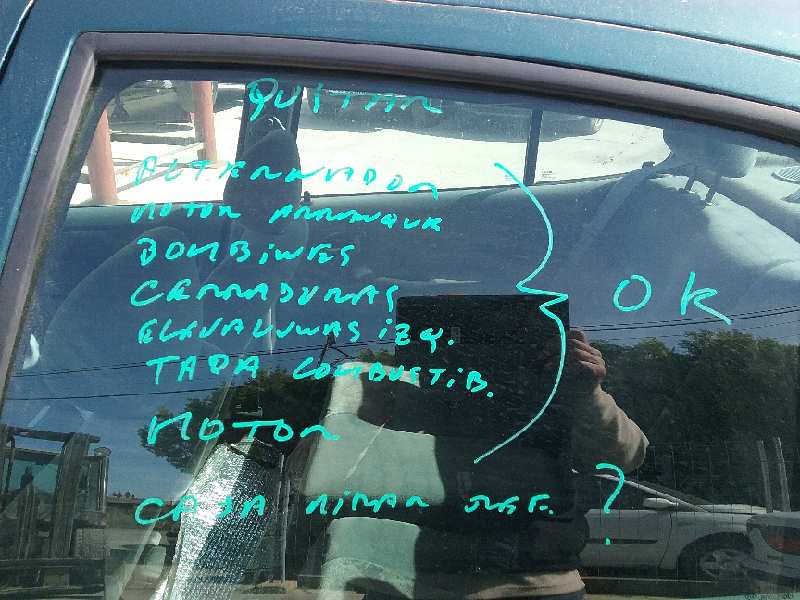 QUITAR
ALTERNADOR
MOTOR ARRANQUE
BOMBINES
CERRADURAS
ELEVALUNAS IZQ.
TAPA COMBUSTIB.
OK
MOTOR
CAJA MIRAR REF. ?